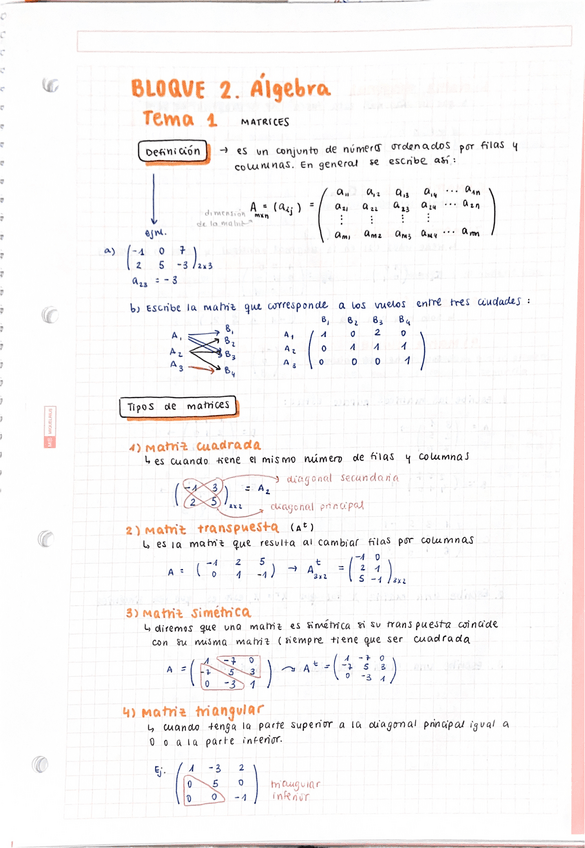 BLOQUE 2. Álgebra
Tema 1 MATRICES
Definición → es un conjunto de números ordenados por filas y
columnas. En general se escribe así:
dimensión de la matriz
A mxn = (aij) = ( a11 a12 a13 a14 ... a1n
a21 a22 a23 a24 ... a2n
⋮ ⋮ ⋮ ⋮
am1 am2 am3 am4 ... amn )
ejm.
a) ( -1 0 7
2 5 -3 ) 2x3
a23 = -3
b) Escribe la matriz que corresponde a los vuelos entre tres ciudades:
A1 B1
B2
A2 B3
A3 B4
B1 B2 B3 B4
A1 ( 1 0 2 0
A2 0 1 1 1
A3 0 0 0 1 )
Tipos de matrices
1) Matriz cuadrada
↳ es cuando tiene el mismo número de filas y columnas
( -1 3 → diagonal secundaria
2 5 ) 2x2 = A2
→ diagonal principal
2) Matriz transpuesta (At)
↳ es la matriz que resulta al cambiar filas por columnas
A = ( -1 2 5
0 1 -1 ) → At 3x2 = ( -1 0
2 1
5 -1 ) 3x2
3) Matriz simétrica
↳ diremos que una matriz es simétrica si su transpuesta coincide
con su misma matriz (siempre tiene que ser cuadrada
A = ( 1 -7 0
-7 5 3
0 -3 1 ) → At = ( 1 -7 0
-7 5 3
0 -3 1 )
4) Matriz triangular
↳ cuando tenga la parte superior a la diagonal principal igual a
0 o a la parte inferior.
Ej. ( 1 -3 2
0 5 0
0 0 -1 ) triangular
inferior